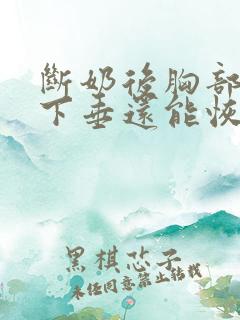 斷奶後胸部
下垂還能恢
黑棋芯子
未经同意禁止转载